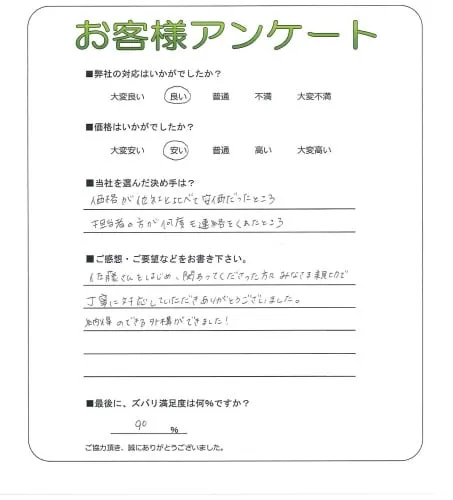 お客様アンケート
■弊社の対応はいかがでしたか?
大変良い 良い 普通 不満 大変不満
■価格はいかがでしたか?
大変安い 安い 普通 高い 大変高い
■当社を選んだ決め手は?
価格が他社と比べて安価だったところ
担当者の方が何度も連絡をくれたところ
■ご感想・ご要望などをお書き下さい。
佐藤さんをはじめ、関わってくださった方はみなさま親切で
丁寧に対応していただきありがとうございました。
納得のできる外構ができました!
■最後に、ズバリ満足度は何%ですか?
90 %
ご協力頂き、誠にありがとうございました。